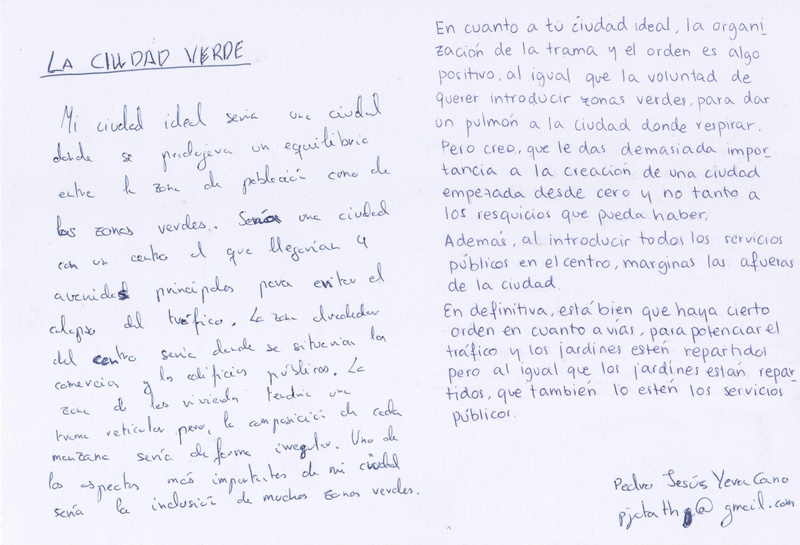 LA CIUDAD VERDE
Mi ciudad ideal sería una ciudad
donde se produjera un equilibrio
entre la zona de població como de
las zonas verdes. Sería una ciudad
con un centro al que llegarían 4
avenidas principales para evitar el
colapso del tráfico. La zona alrededor
del centro sería donde se situarían los
comercios y los edificios públicos. La
zona de las viviendas tendría una
trama reticular pero, la composició de cada
manzana sería de forma irregular. Uno de
los aspectos más importantes de mi ciudad
sería la inclusió de muchas zonas verdes.
En cuanto a tu ciudad ideal, la organi_
zación de la trama y el orden es algo
positivo, al igual que la voluntad de
querer introducir zonas verdes, para dar
un pulmón a la ciudad donde respirar.
Pero creo, que le das demasiada impor_
tancia a la creación de una ciudad
empezada desde cero y no tanto a
los resquicios que pueda haber.
Además, al introducir todos los servicios
públicos en el centro, marginas las afueras
de la ciudad.
En definitiva, está bien que haya cierto
orden en cuanto a vías, para potenciar el
tráfico y los jardines estén repartidos
pero al igual que los jardines están repar_
tidos, que también lo estén los servicios
públicos.
Pedro Jesús Yeva Cano
@gmail.com